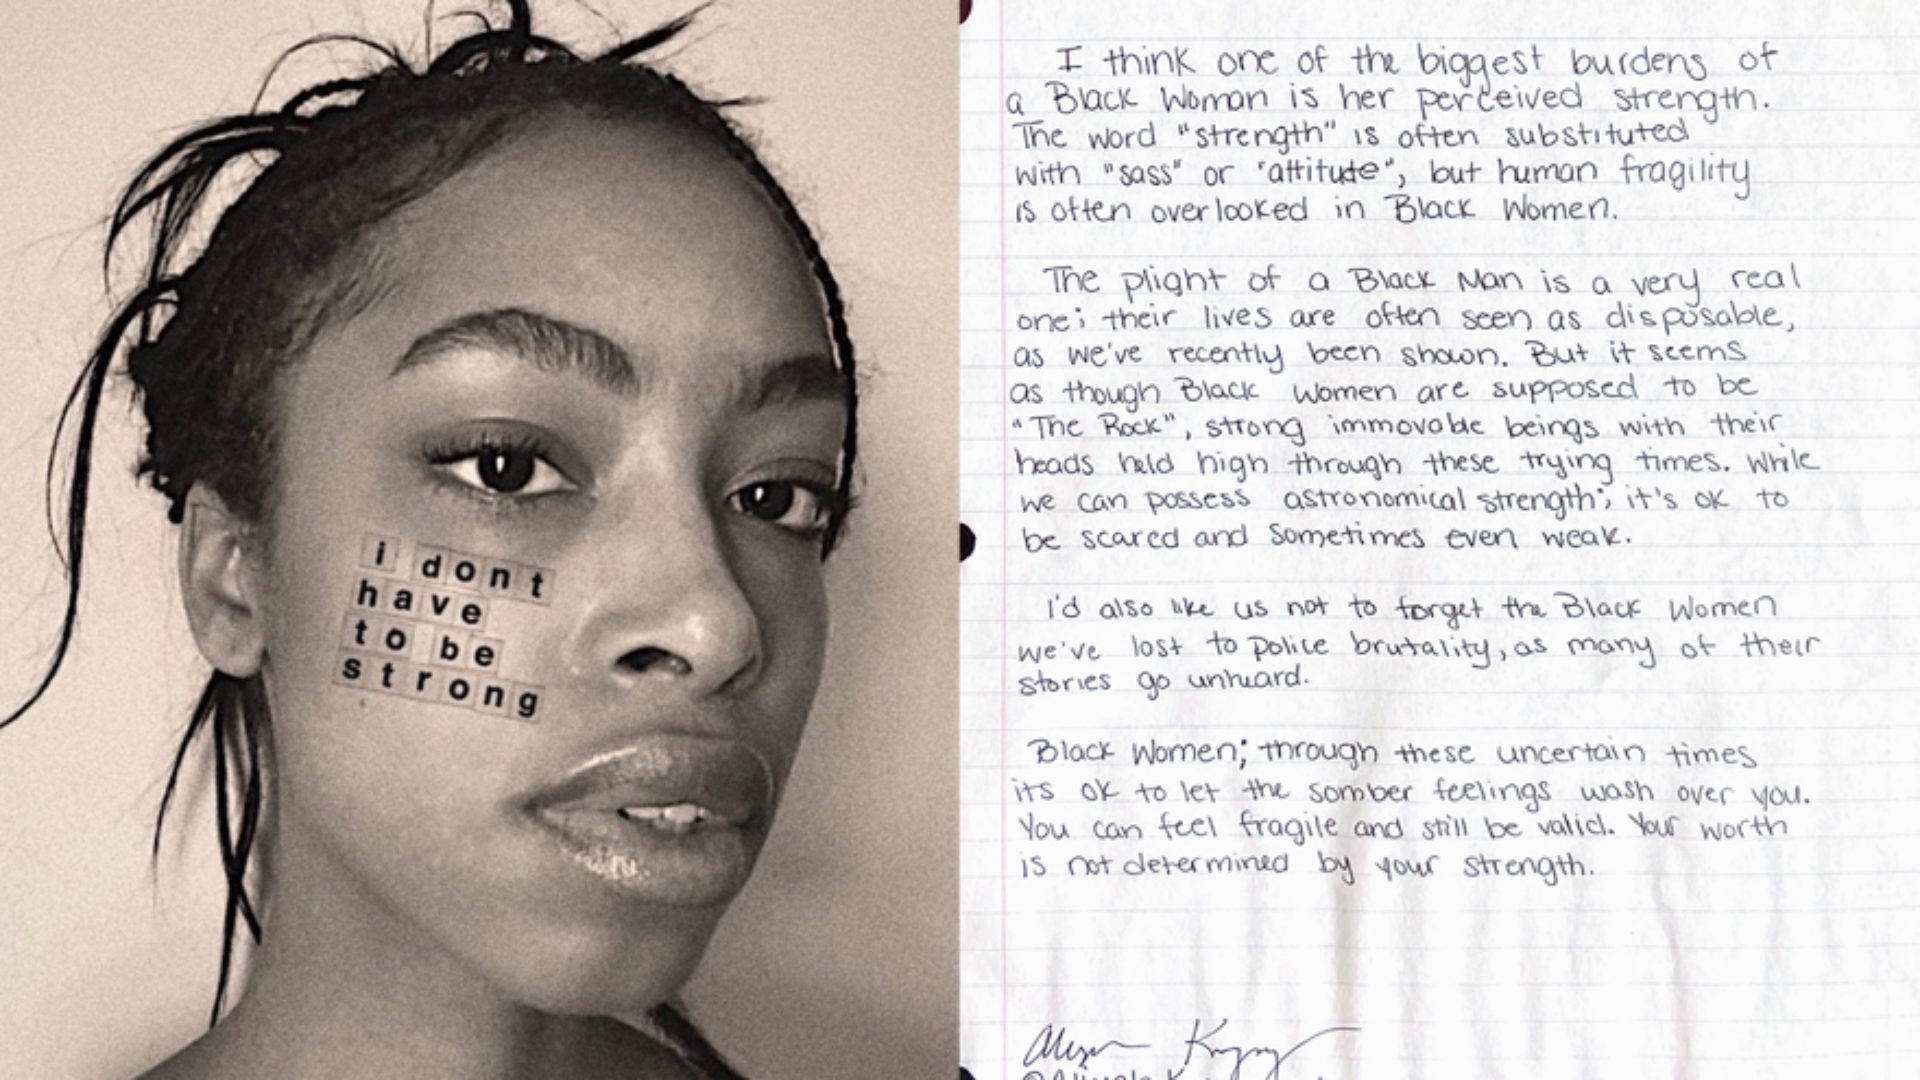 i dont
have
to be
strong
I think one of the biggest burdens of
a Black Woman is her perceived strength.
The word "strength" is often substituted
with "sass" or "attitude", but human fragility
is often overlooked in Black Women.
The plight of a Black Man is a very real
one; their lives are often seen as disposable,
as we've recently been shown. But it seems
as though Black Women are supposed to be
"The Rock", strong immovable beings with their
heads held high through these trying times. While
we can possess astronomical strength; it's ok to
be scared and sometimes even weak.
I'd also like us not to forget the Black Women
we've lost to police brutality, as many of their
stories go unheard.
Black Women; through these uncertain times
its ok to let the somber feelings wash over you.
You can feel fragile and still be valid. Your worth
is not determined by your strength.